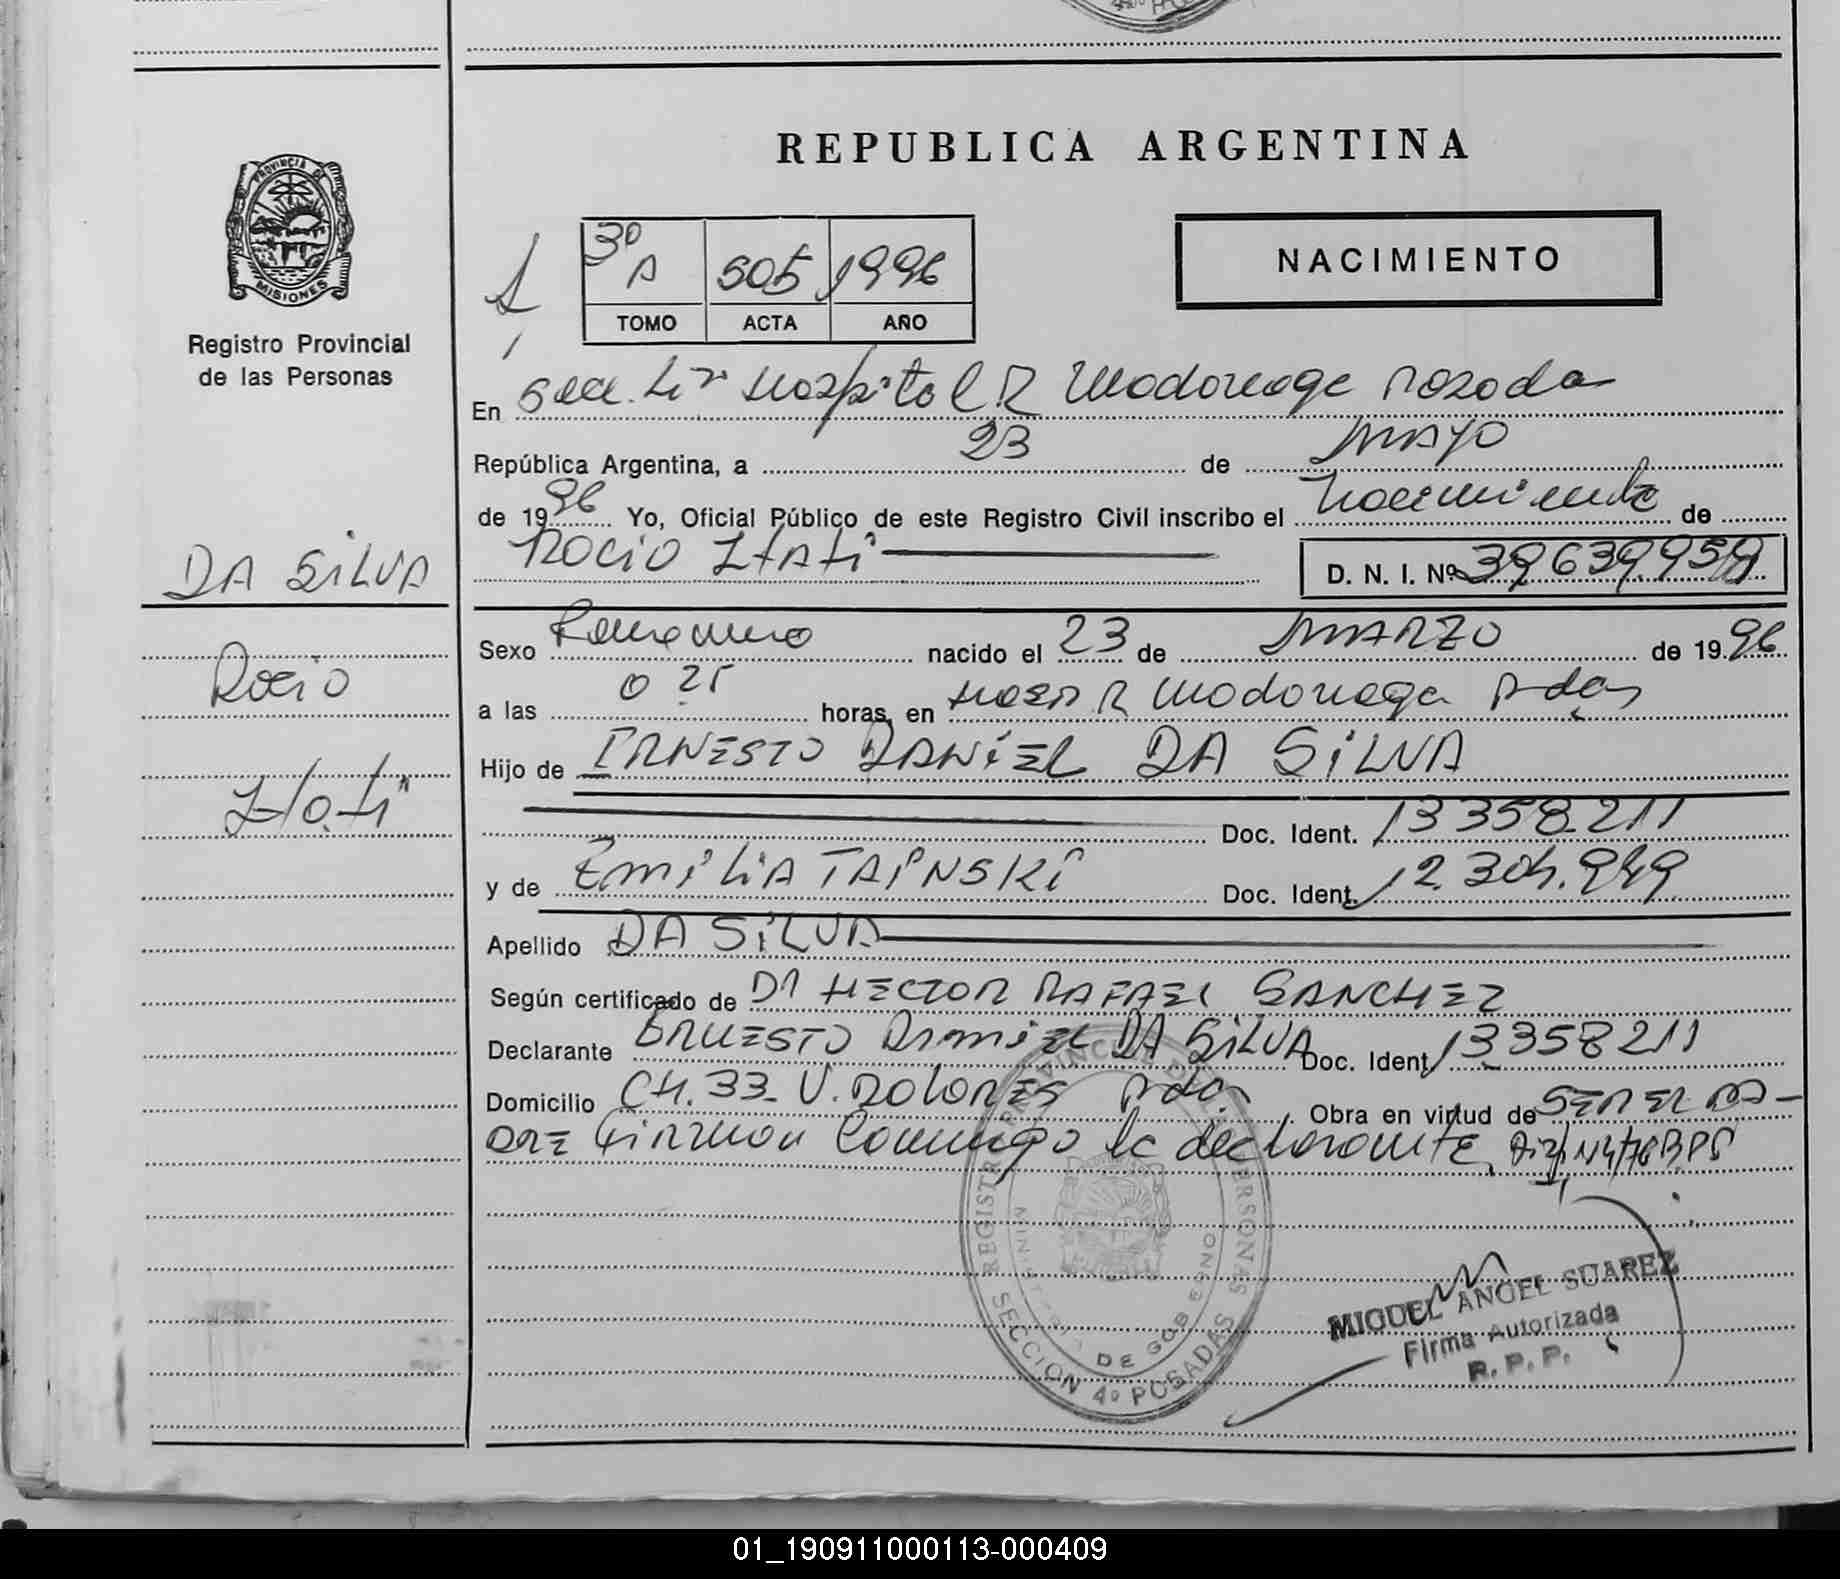 REPUBLICA ARGENTINA
PROVINCIA DE
MISIONES
Registro Provincial
de las Personas
3º
A 505 1996
TOMO ACTA AÑO
NACIMIENTO
En Secc. Hospital R Madariaga Posadas
República Argentina, a 23 de MAYO
de 1996 Yo, Oficial Público de este Registro Civil inscribo el nacimiento de
ROCIO ITATI D. N. I. Nº 39639959
DA SILVA
Rocio
Itati
Sexo Femenino nacido el 23 de MARZO de 1996
a las 0 25 horas, en Hosp R Madariaga Pdas
Hijo de ERNESTO DANIEL DA SILVA
Doc. Ident. 13358211
y de EMILIA TAINSKI Doc. Ident. 12.304.949
Apellido DA SILVA
Según certificado de Dr HECTOR RAFAEL SANCHEZ
Declarante ERNESTO DANIEL DA SILVA Doc. Ident 13358211
Domicilio CH. 33 V. DOLORES Pdas Obra en virtud de SER EL PA-
DRE Firman Conmigo la declarante
REGISTRO PROVINCIAL DE LAS PERSONAS
MINISTERIO DE GOBIERNO
SECCION 4º POSADAS
MIGUEL ANGEL SUAREZ
Firma Autorizada
R. P. P.
01_190911000113-000409